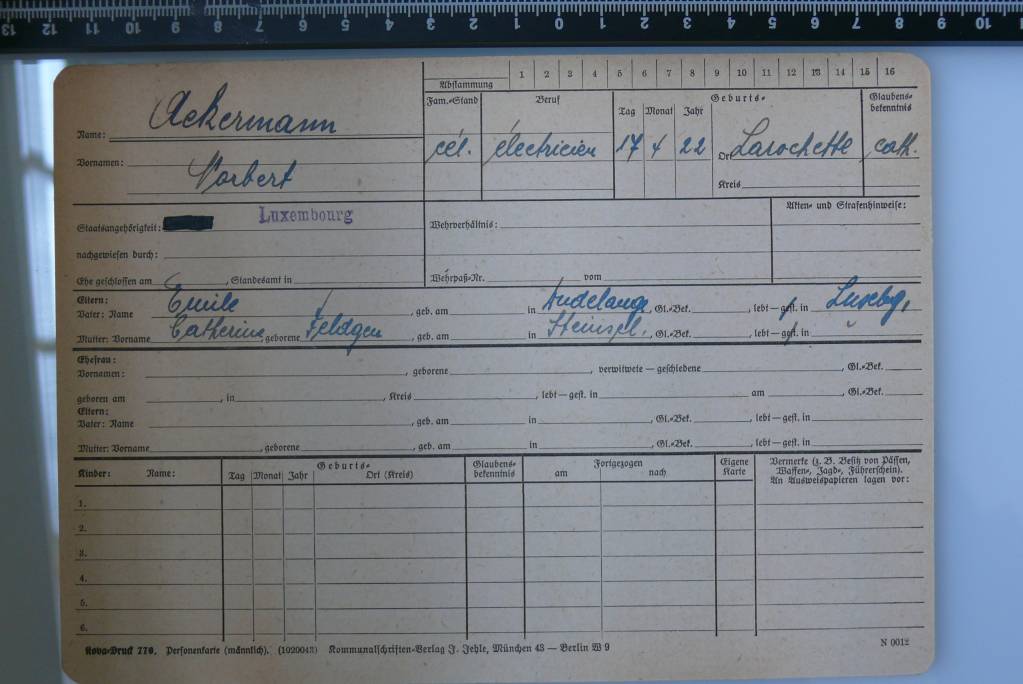 13 12 11 10 9 8 7 6 5 4 3 2 1 0 1 2 3 4 5 6 7 8 9 10
1 2 3 4 5 6 7 8 9 10 11 12 13 14 15 16
Abstammung
Fam.-Stand Beruf Geburts- Glaubens-
bekenntnis
Tag Monat Jahr
Name: Ackermann
cél. électricien 17 4 22 Ort Larochette cath.
Vornamen: Norbert
Kreis
Staatsangehörigkeit: Luxembourg
Wehrverhältnis:
Akten- und Strafenhinweise:
nachgewiesen durch:
Ehe geschlossen am , Standesamt in
Wehrpaß-Nr. vom
Eltern:
Vater: Name Emile , geb. am in , Gl.-Bek. , lebt—gest. in Luxebg,
Mutter: Vorname Catherine, geborene Feldgen , geb. am in Steinsel, , Gl.-Bek. , lebt—gest. in "
Ehefrau:
Vornamen: , geborene , verwitwete — geschiedene , Gl.-Bek.
geboren am , in , Kreis , lebt—gest. in am , Gl.-Bek.
Eltern:
Vater: Name , geb. am in , Gl.-Bek. , lebt—gest. in
Mutter: Vorname , geborene , geb. am in , Gl.-Bek. , lebt—gest. in
Kinder: Name: Geburts- Glaubens-
bekenntnis Fortgezogen Eigene
Karte Vermerke (z. B. Besitz von Pässen,
Waffen-, Jagd-, Führerschein).
An Ausweispapieren lagen vor:
Tag Monat Jahr Ort (Kreis) am nach
1.
2.
3.
4.
5.
6.
Nova-Druck 770. Personenkarte (männlich). (1020043) Kommunalschriften-Verlag J. Jehle, München 43 — Berlin W 9
N 0012